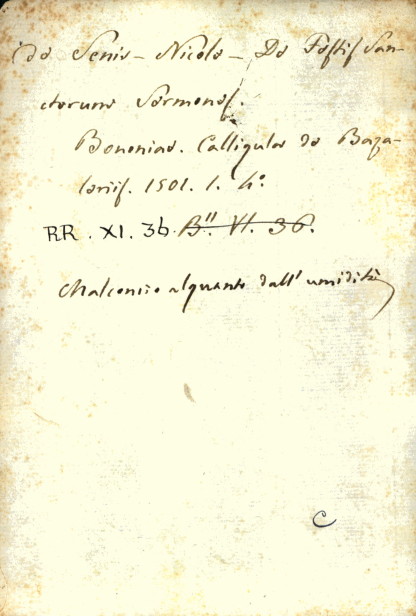 de Senis - Nicola - De Festis San-
ctorum Sermones.
Bononiae. Calligula de Baza-
leriis. 1501. 1. 4º.
RR. XI. 36. B". VI. 36.
Malconcio alquanto dall' umidità
C